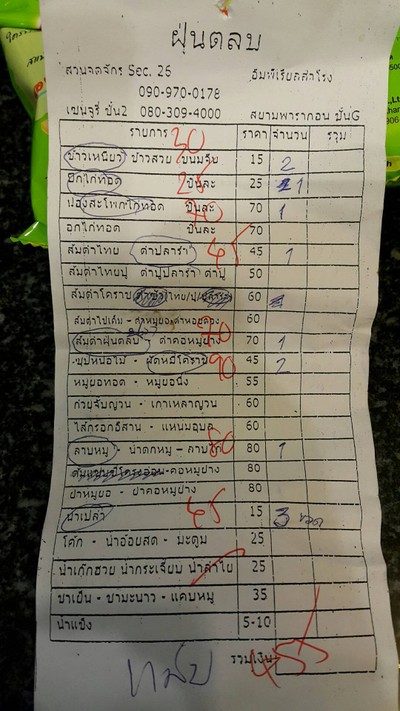 ฝุ่นตลบ
สวนจตุจักร Sec. 26 อิมพีเรียลสำโรง
090-970-0178
เฆนจุรี่ ชั้น2 080-309-4000 สยามพารากอน ชั้นG
รายการ ราคา จำนวน รวม
30
ข้าวเหนียว ข้าวสวย ขนมจีน 15 2
ปีกไก่ทอด ชิ้นละ 25 25 1
น่อง/สะโพกไก่ทอด ชิ้นละ 70 70 1
อกไก่ทอด ชิ้นละ 70
ส้มตำไทย ตำปลาร้า 45 45 1
ส้มตำไทยปู ตำปูปลาร้า ตำปู 50
ส้มตำโคราช ไทย/ปู/ปลาร้า 60
ส้มตำไข่เค็ม - ตำหมูยอ ตำหอยดอง 60
ส้มตำฝุ่นตลบ ตำคอหมูย่าง 70 70 1
ซุปหน่อไม้ - ผัดหมี่โคราช 90 45 2
หมูยอทอด - หมูยอนึ่ง 55
ก๋วยจั๊บญวน - เกาเหลาญวน 60
ไส้กรอกอีสาน - แหนมอุบล 60
ลาบหมู - น้ำตกหมู - ลาบไก่ 80 80 1
คอหมูย่าง 80
ยำหมูยอ - ยำคอหมูย่าง 80
น้ำเปล่า 45 15 3 ขวด
โค้ก - น้ำอ้อยสด - มะตูม 25
น้ำเก๊กฮวย น้ำกระเจี๊ยบ น้ำลำไย 25
ชาเย็น - ชามะนาว - แคบหมู 35
น้ำแข็ง 5-10
รวมเงิน 455